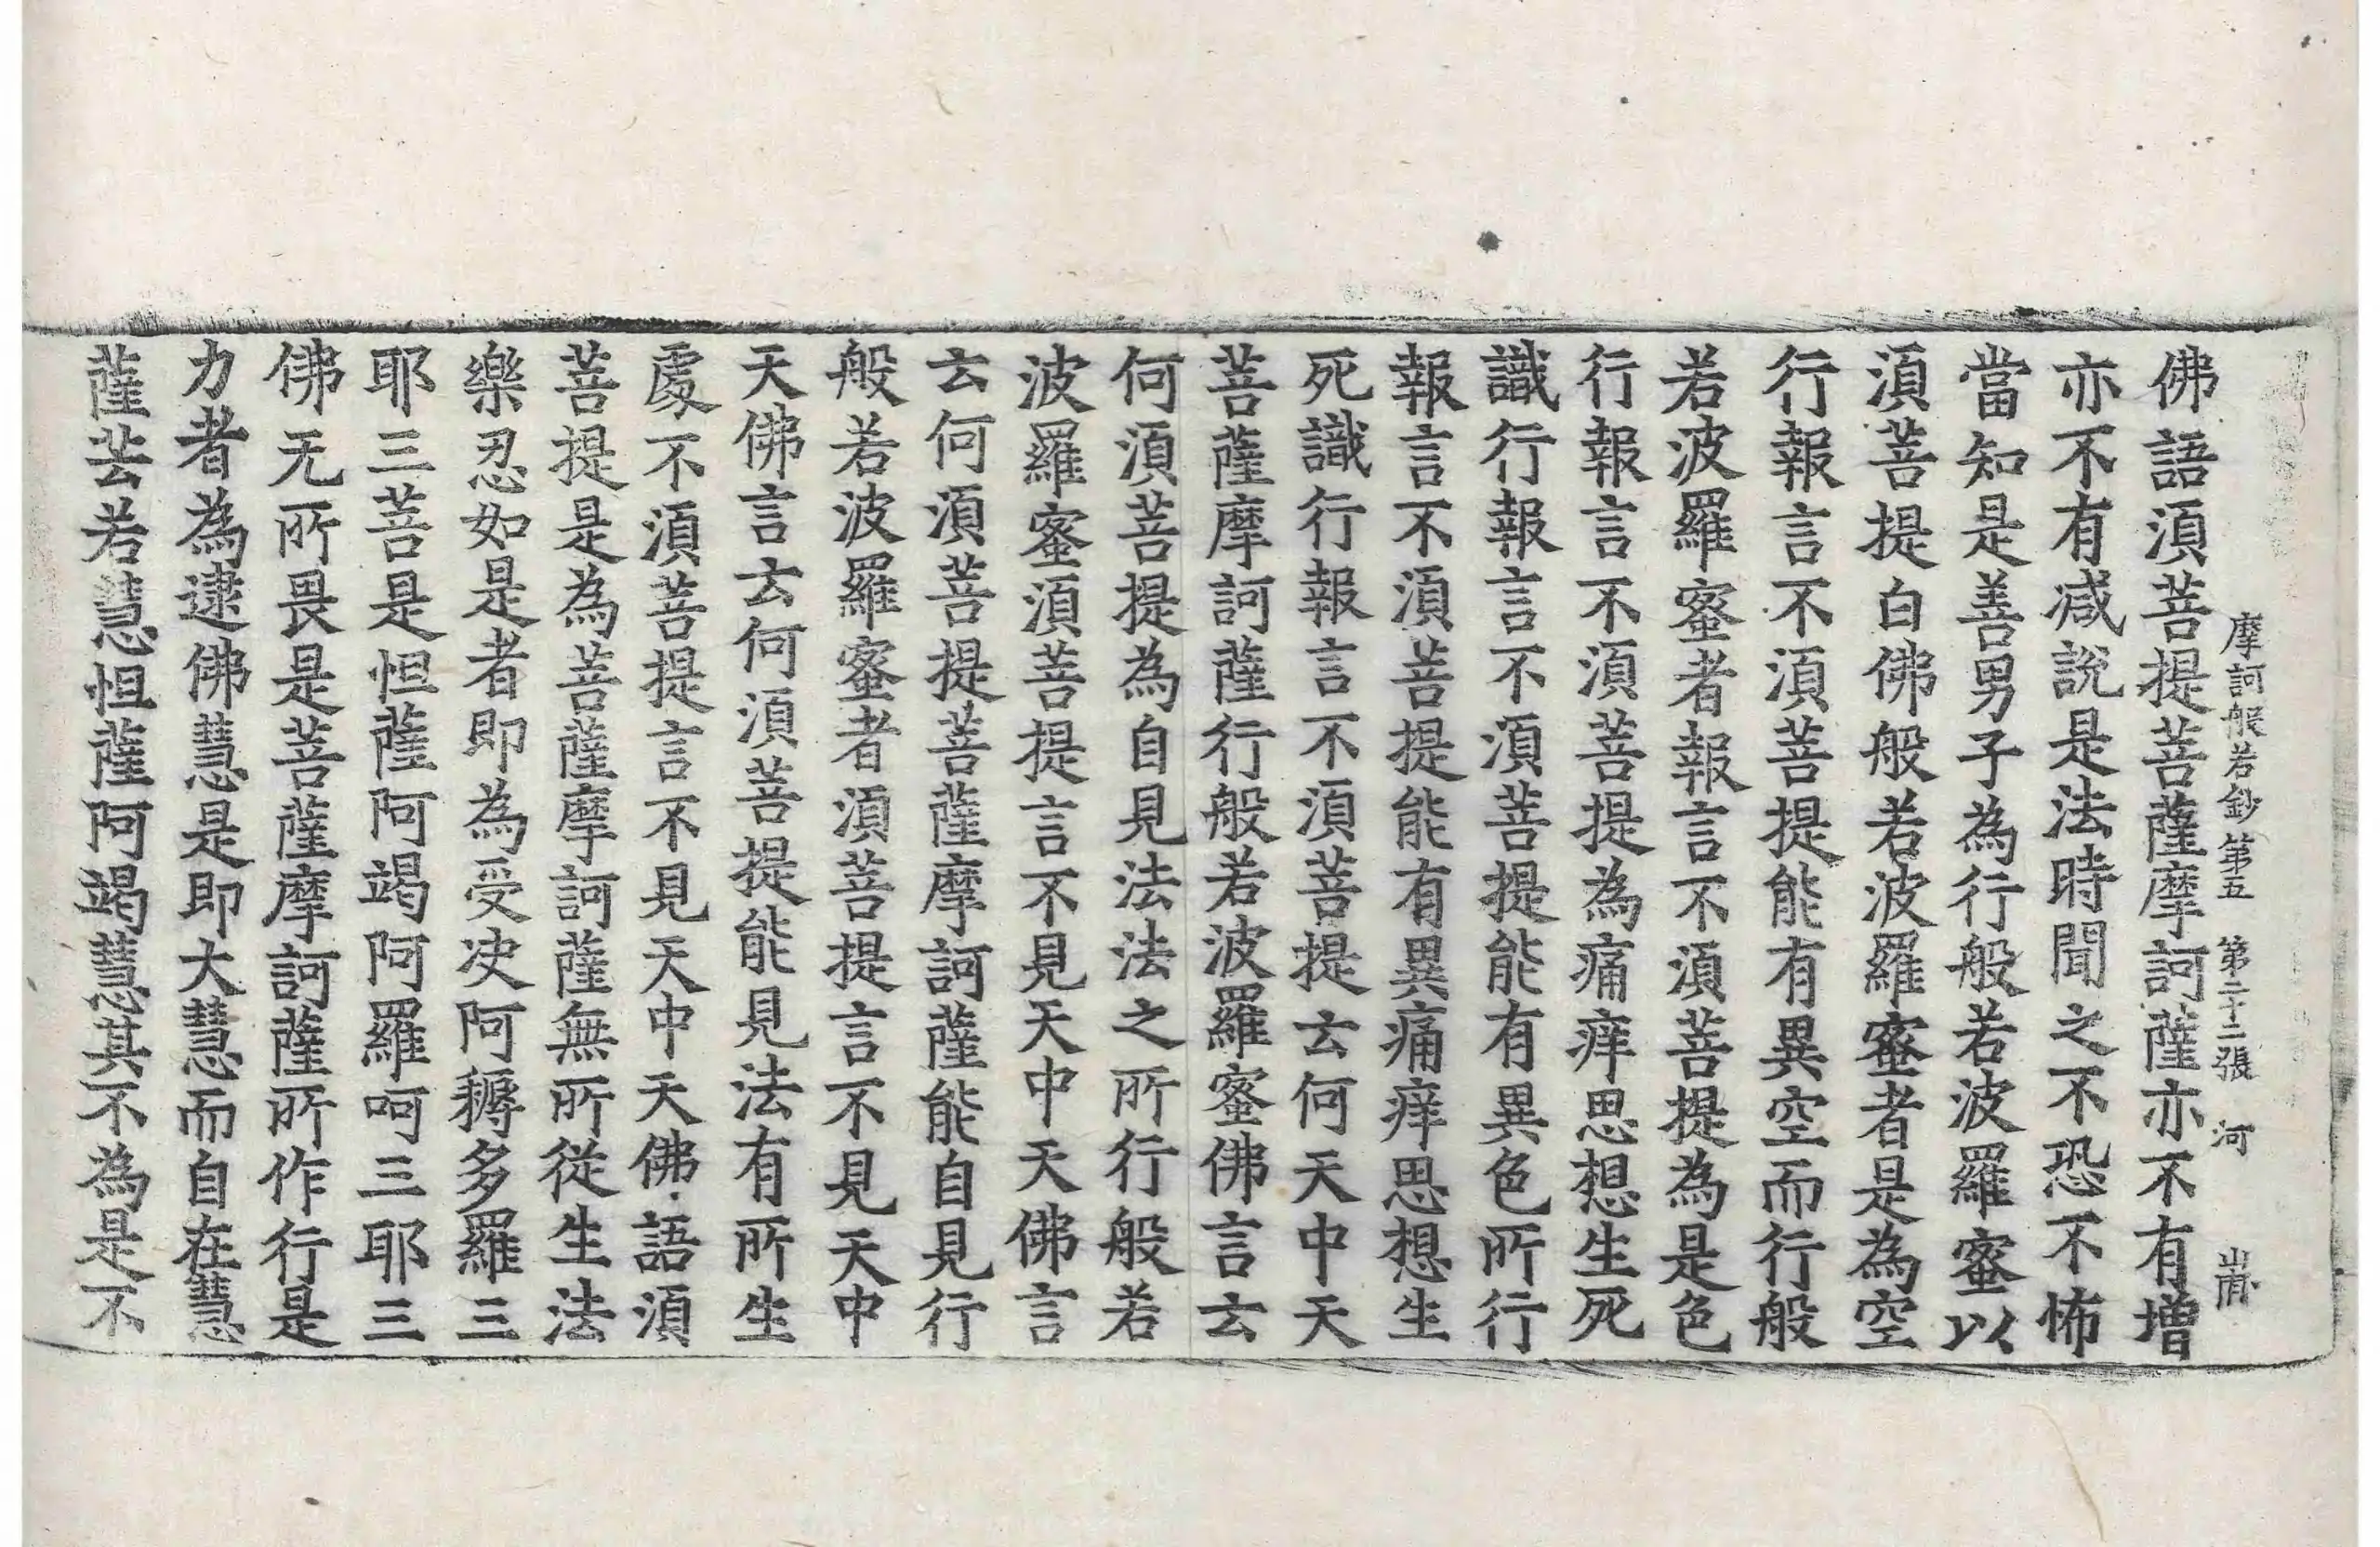 摩訶般若鈔第五　第二十二張　河
佛語須菩提菩薩摩訶薩亦不有増
亦不有减說是法時聞之不恐不怖
當知是善男子為行般若波羅蜜以
須菩提白佛般若波羅蜜者是為空
行報言不須菩提能有異空而行般
若波羅蜜者報言不須菩提為是色
行報言不須菩提為痛痒思想生死
識行報言不須菩提能有異色所行
報言不須菩提能有異痛痒思想生
死識行報言不須菩提云何天中天
菩薩摩訶薩行般若波羅蜜佛言云
何須菩提為自見法法之所行般若
波羅蜜須菩提言不見天中天佛言
云何須菩提菩薩摩訶薩能自見行
般若波羅蜜者須菩提言不見天中
天佛言云何須菩提能見法有所生
處不須菩提言不見天中天佛語須
菩提是為菩薩摩訶薩無所從生法
樂忍如是者即為受决阿耨多羅三
耶三菩是怛薩阿竭阿羅呵三耶三
佛无所畏是菩薩摩訶薩所作行是
力者為逮佛慧是即大慧而自在慧
薩芸若慧怛薩阿竭慧其不為是不